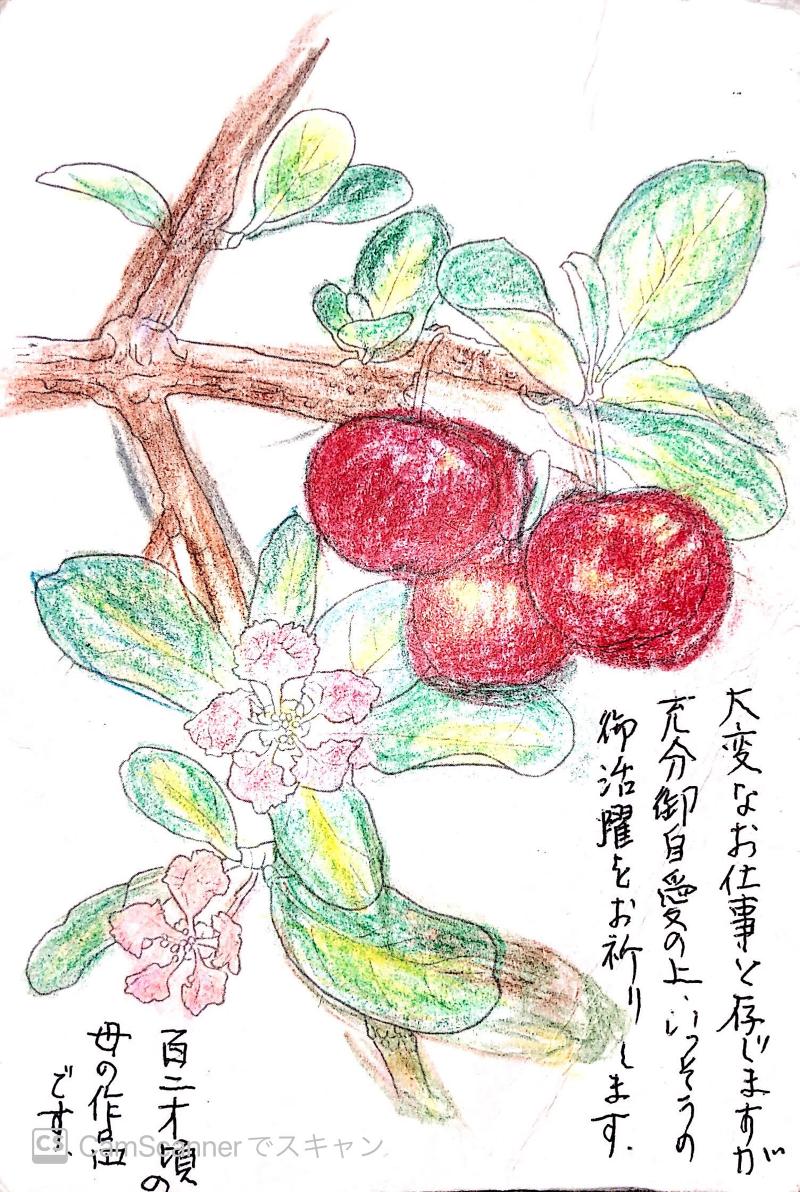 大変なお仕事と存じますが
充分御自愛の上、いっそうの
御活躍をお祈りします.
百二才頃の
母の作品
です.
CS CamScanner でスキャン